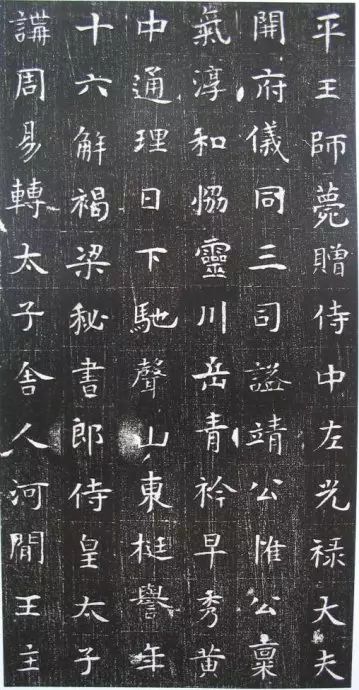 平王師薨贈侍中左光祿大夫
開府儀同三司謚靖公惟公稟
氣淳和恊靈川岳青衿早秀黃
中通理日下馳聲山東挺譽年
十六解褐梁秘書郎侍皇太子
講周易轉太子舍人河間王主